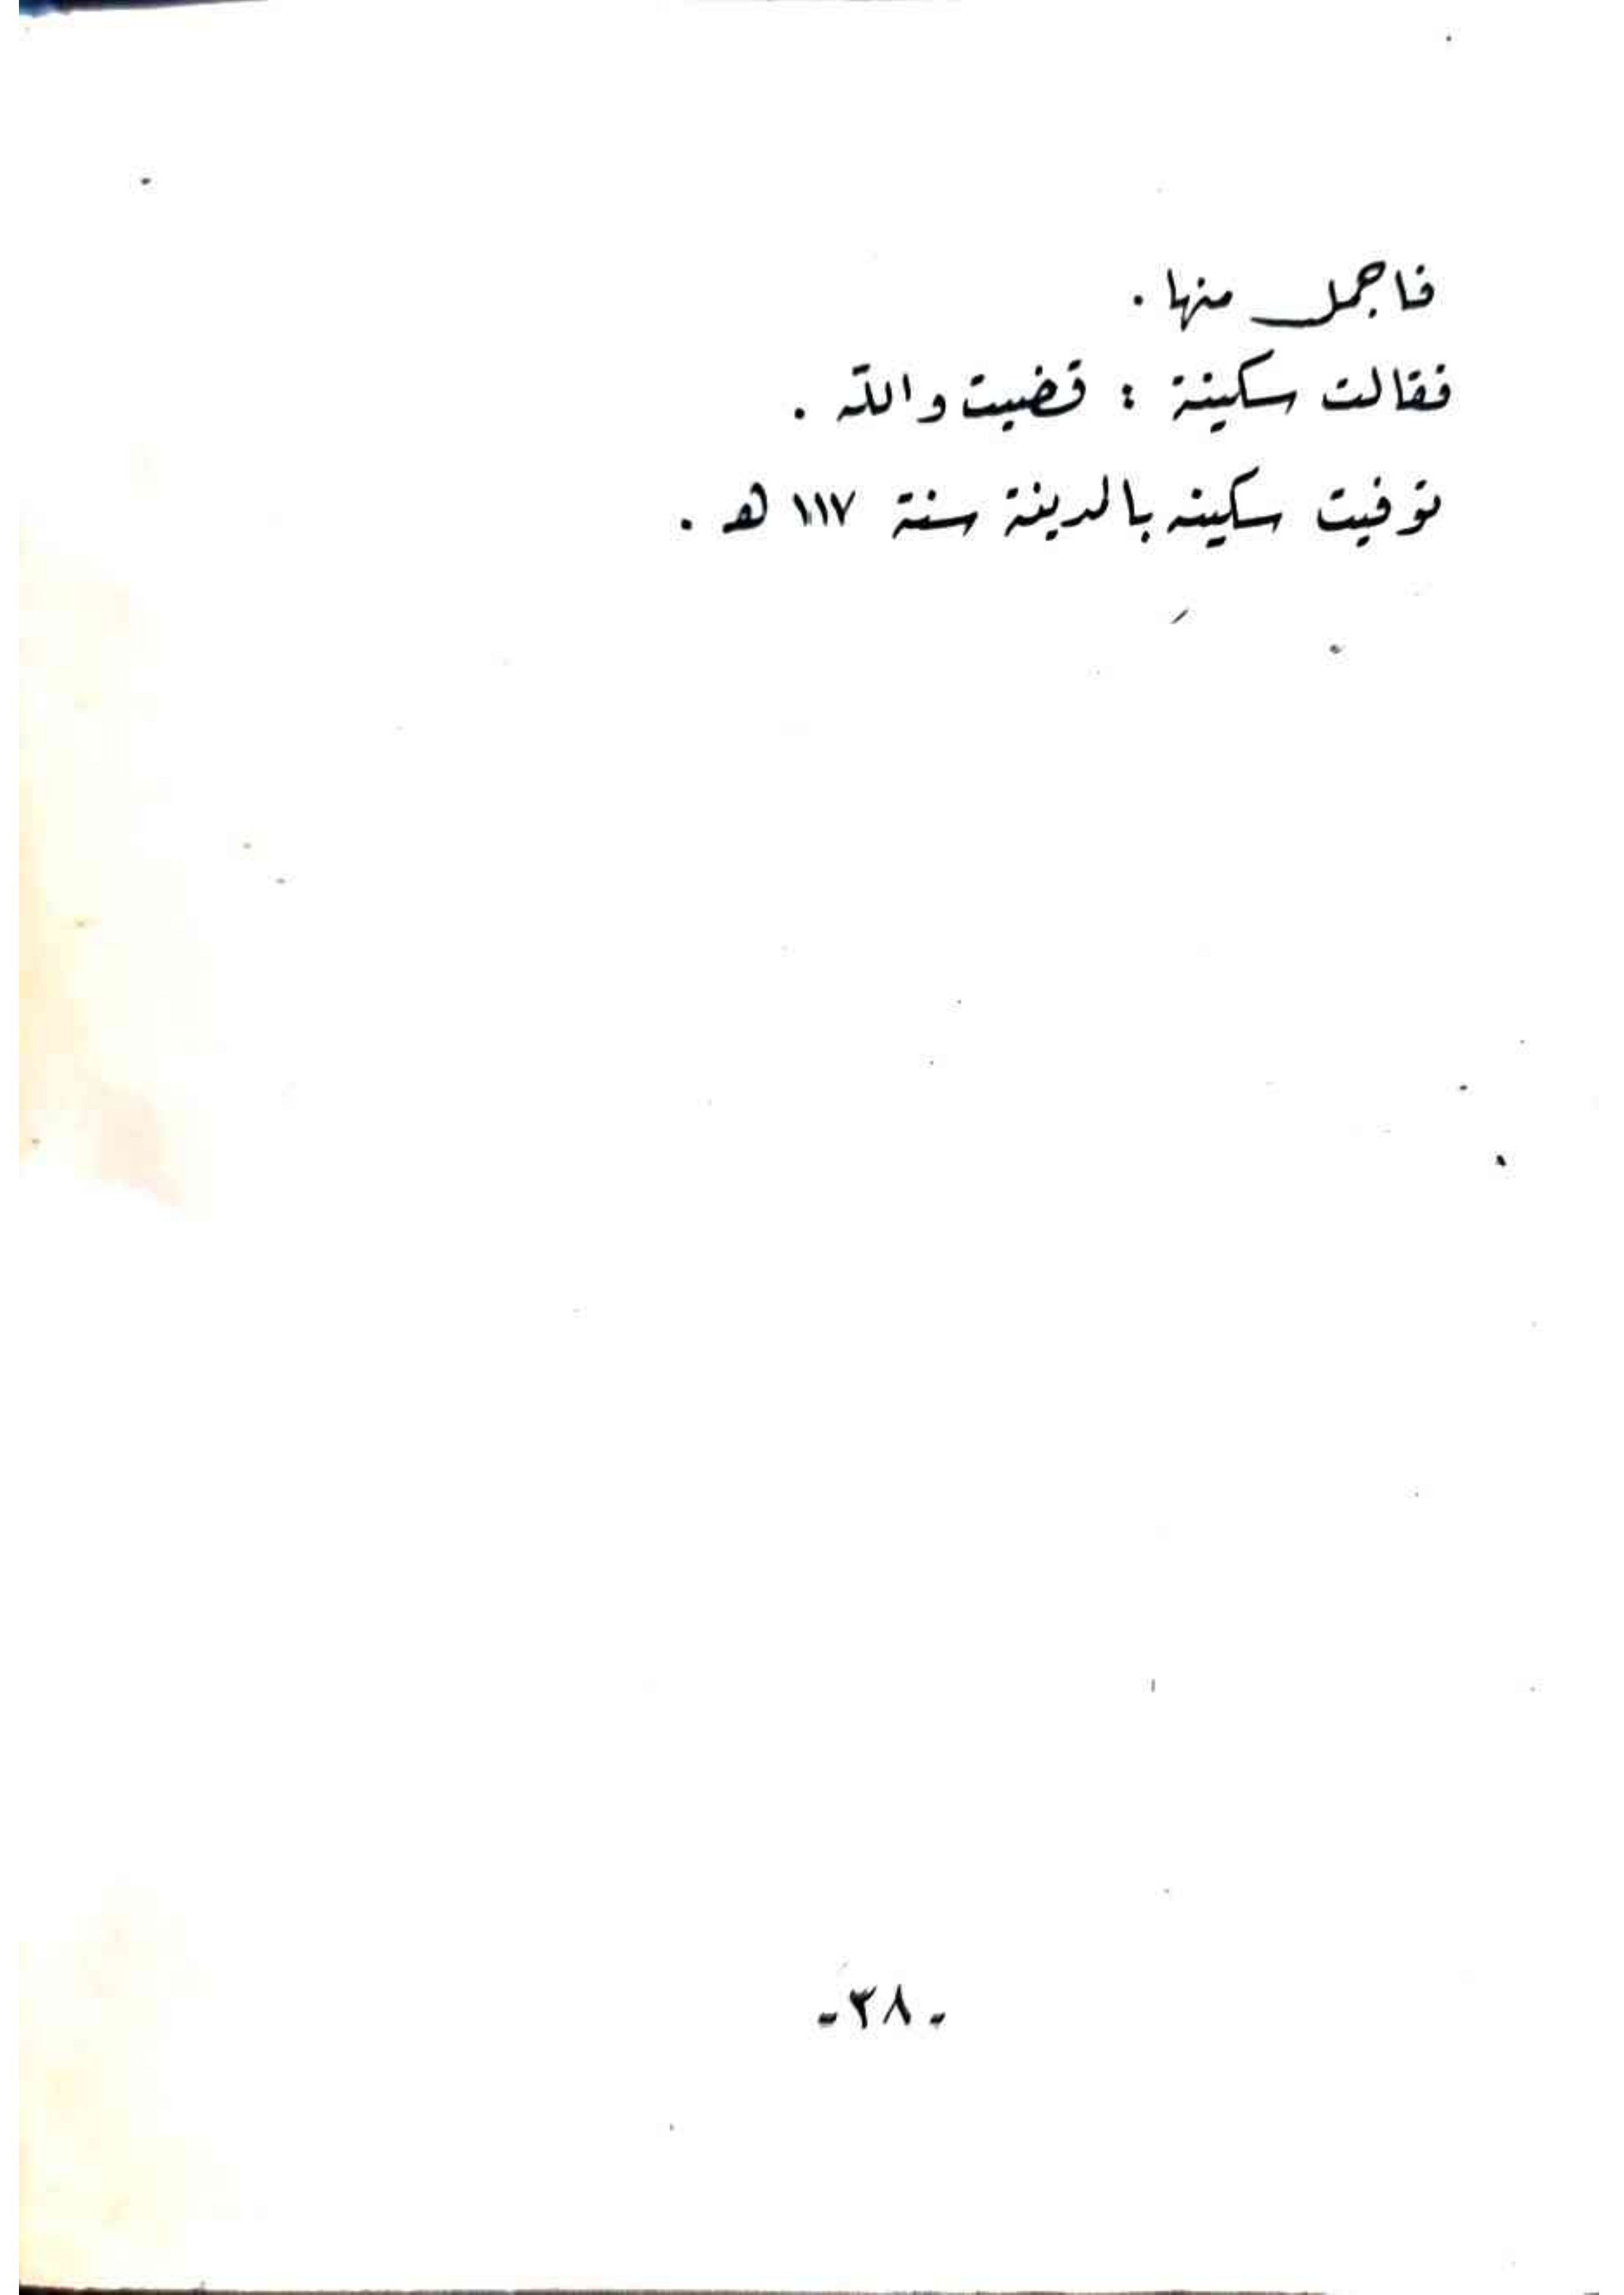 فاجمل منها .
فقالت سكينة : قضيت والله .
توفيت سكينه بالمدينة سنة ١١٧ هـ .
-٣٨-